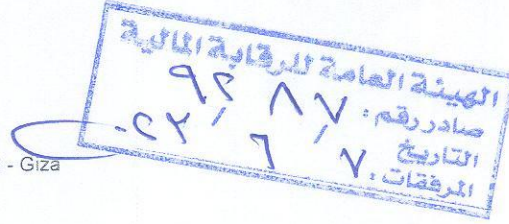 الهيئة العامة للرقابة المالية
صادر رقم: ٩٢٨٧
التاريخ ٧ / ٦ /
المرفقات:
- Giza